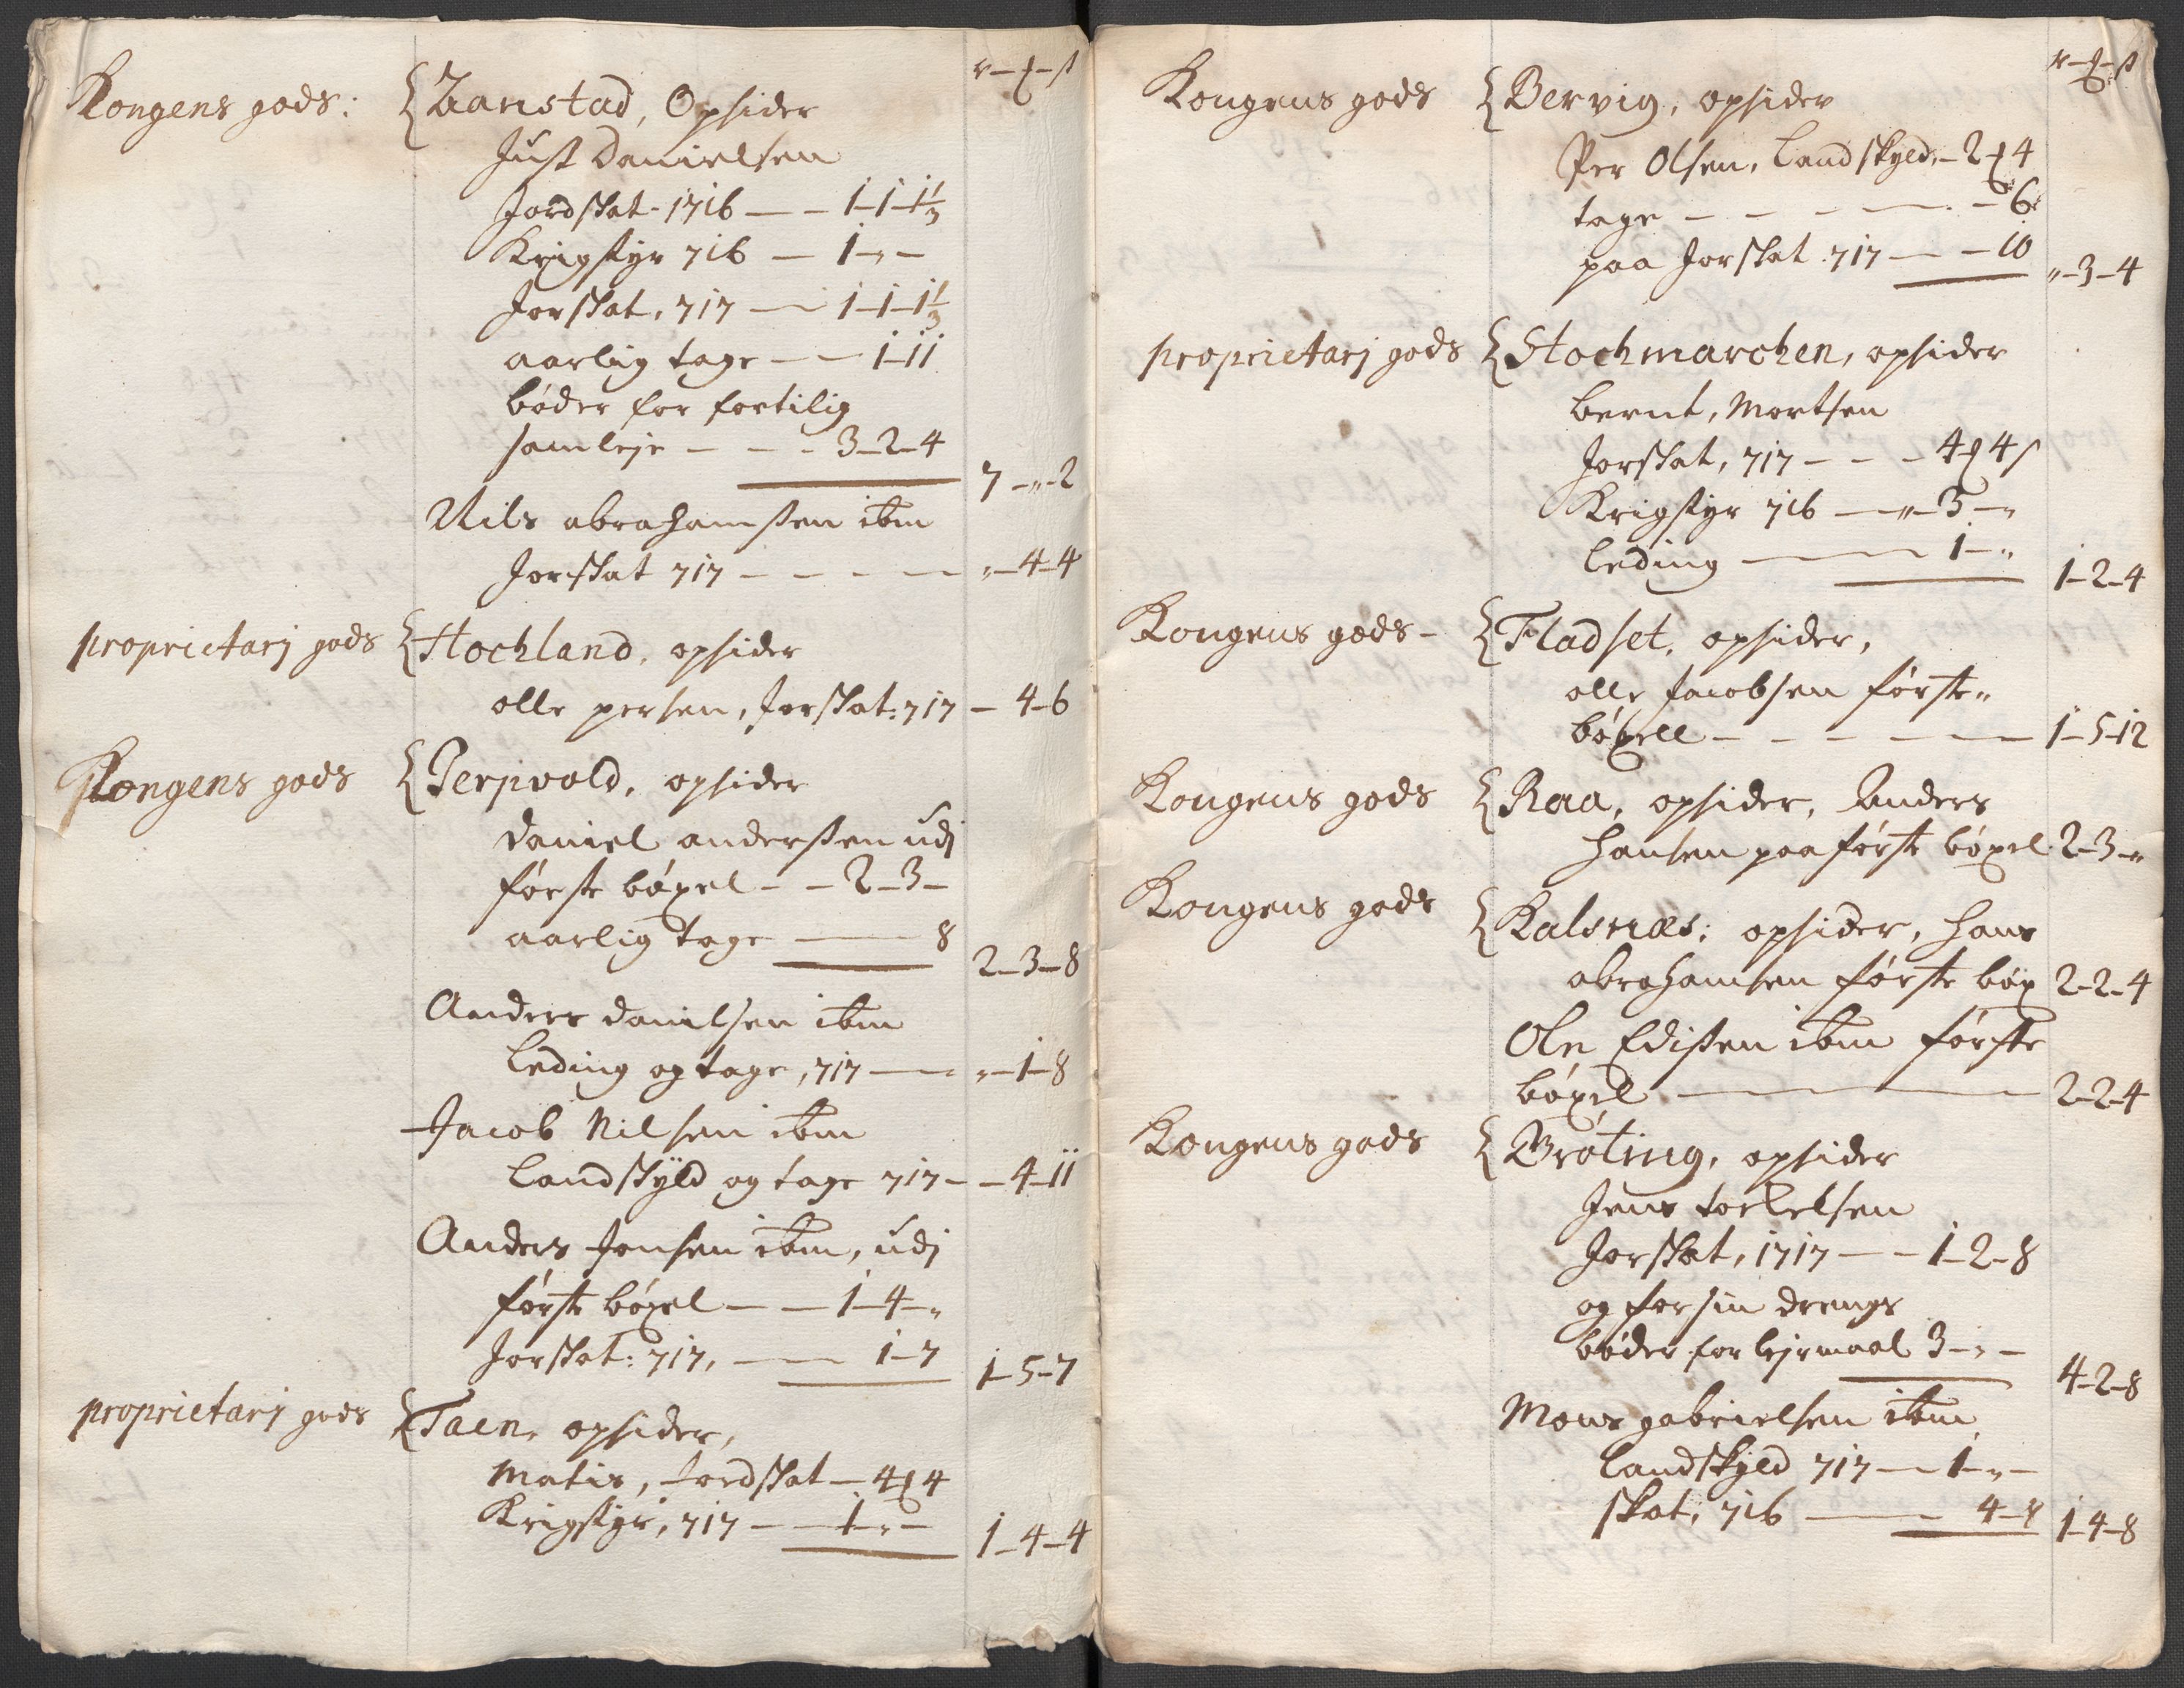 r - ₰ - ß
Kongens gods: { Zanstad, Opsider
Just Danielsen
Jordskat - 1716 — — 1-1-1⅓
Krigstyr 716 — 1-„-
Jorskat, 717 — 1-1-1⅓
aarlig tage — — 1-11
bøder for fortilig
samleje - - - 3-2-4
7-„-2
Nils abrahamsen ibm
Jorskat 717 - - - — „-4-4
proprietarj gods { Hochland, opsider
olle persen, Jorskat: 717 — 4-6
Kongens gods { Jerpvold, opsider
Daniel andersen udj
første bøxel - - 2-3-
aarlig tage — 8
2-3-8
Anders danilsen ibm
Leding og tage, 717 — „-1-8
Jacob Nilsen ibm
Landskyld og tage 717 - - 4-11
Anders Jonsen ibm, udj
første bøxel — — 1-4-„
Jorskat: 717, — 1-7
1-5-7
proprietarj gods { Taen, opsider,
Matis, Jordskat — 4 ₰ 4
Krigstyr, 717 - — 1-„-
1-4-4
r - ₰ - ß
Kongens gods { Bervig, opsider
Per Olsen, Landskyld, - 2 ₰ 4
tage - - - — - 6
paa Jorskat 717 — - 10
„-3-4
proprietarj gods { Stochmarchen, opsider
Bernt, Mortsen
Jorskat, 717 - - - 4 ₰ 4 ß
Krigstyr 716 — „-3-„
Leding — 1-„
1-2-4
Kongens gods - { Fladset, opsider,
olle Jacobsen første
bøxell - - - - — 1-5-12
Kongens gods { Raa, opsider, Anders
Hansen paa første bøxel 2-3-„
Kongens gods { Kalsnæs; opsider, Hans
abrahamsen første bøx 2-2-4
Ole Edissen ibm første
bøxel — 2-2-4
Kongens gods { Brøting, opsider
Jens torkelsen
Jorskat, 1717 — - 1-2-8
og for sin drengs
bøder for lejrmaal 3-„-
4-2-8
Mons gabrielsen ibm
Landskyld 717 — 1-„-
skat, 716 — 4-8
1-4-8